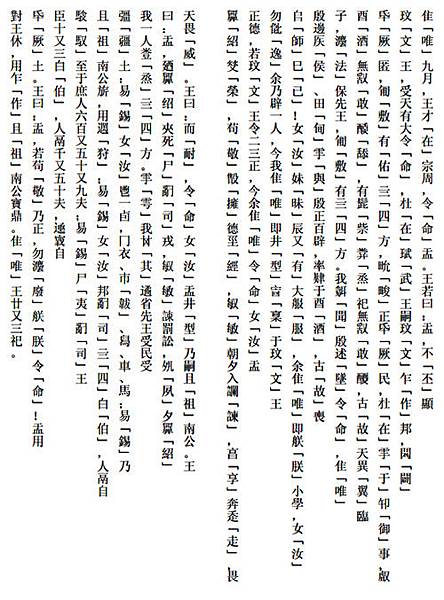 隹「唯」九月,王才「在」宗周,令「命」盂。王若曰:盂,不「丕」顯
玟「文」王,受天有大令「命」,𡉈「在」珷「武」王嗣玟「文」乍「作」邦,「闢」
氒「厥」匿,匍「敷」有「佑」三「四」方,㽙「畯」正氒「厥」民,𡉈「在」雩「于」「御」事,𠭯
酉「酒」無「敢」「舔」,有髭「柴」「蒸」祀無「敢」,古「故」天異「翼」臨
子,灋「法」保先王,「敷」有三「四」方。我「聞」殷述「墜」令「命」,隹「唯」
殷邊「侯」、田「甸」雩「與」殷正百辟,率肄于酉「酒」,古「故」喪
𠂤「師」巳「已」!女「汝」妹「昧」辰又「有」大「服」,余隹「唯」即「朕」小學,女「汝」
勿「逸」余乃辟一人,今我隹「唯」即井「型」㐭「稟」于玟「文」王
正德,若玟「文」王令二三正,今余隹「唯」令「命」女「汝」盂
「紹」「榮」,茍「敬」「擁」德巠「經」,「敏」朝夕入讕「諫」,亯「享」奔「走」,畏
天畏「威」。王曰:而「耐」,令「命」女「汝」盂井「型」乃嗣且「祖」南公。王
曰:盂,廼「绍」夾死「尸」𤔲「司」戎,「敏」諫罰訟,「夙」夕「紹」
我一人登「烝」三「四」方。雩「粵」我「其」遹省先王受民受
彊「疆」土:易「錫」女「汝」鬯一卣,冂衣、巿「韍」、舄、車、馬;易「錫」乃
且「祖」南公旂,用「狩」;易「錫」女「汝」邦𤔲「司」三「四」白「伯」,人鬲自
駿「馭」至于庶人六百又五十又九夫;易「錫」尸「夷」𤔲「司」王
臣十又三白「伯」,人鬲千又五十夫,自
氒「厥」土。王曰:盂,若茍「敬」乃正,勿灋「廢」「朕」令「命」!盂用
對王休,用乍「作」且「祖」南公寶鼎。隹「唯」王廿又三祀。